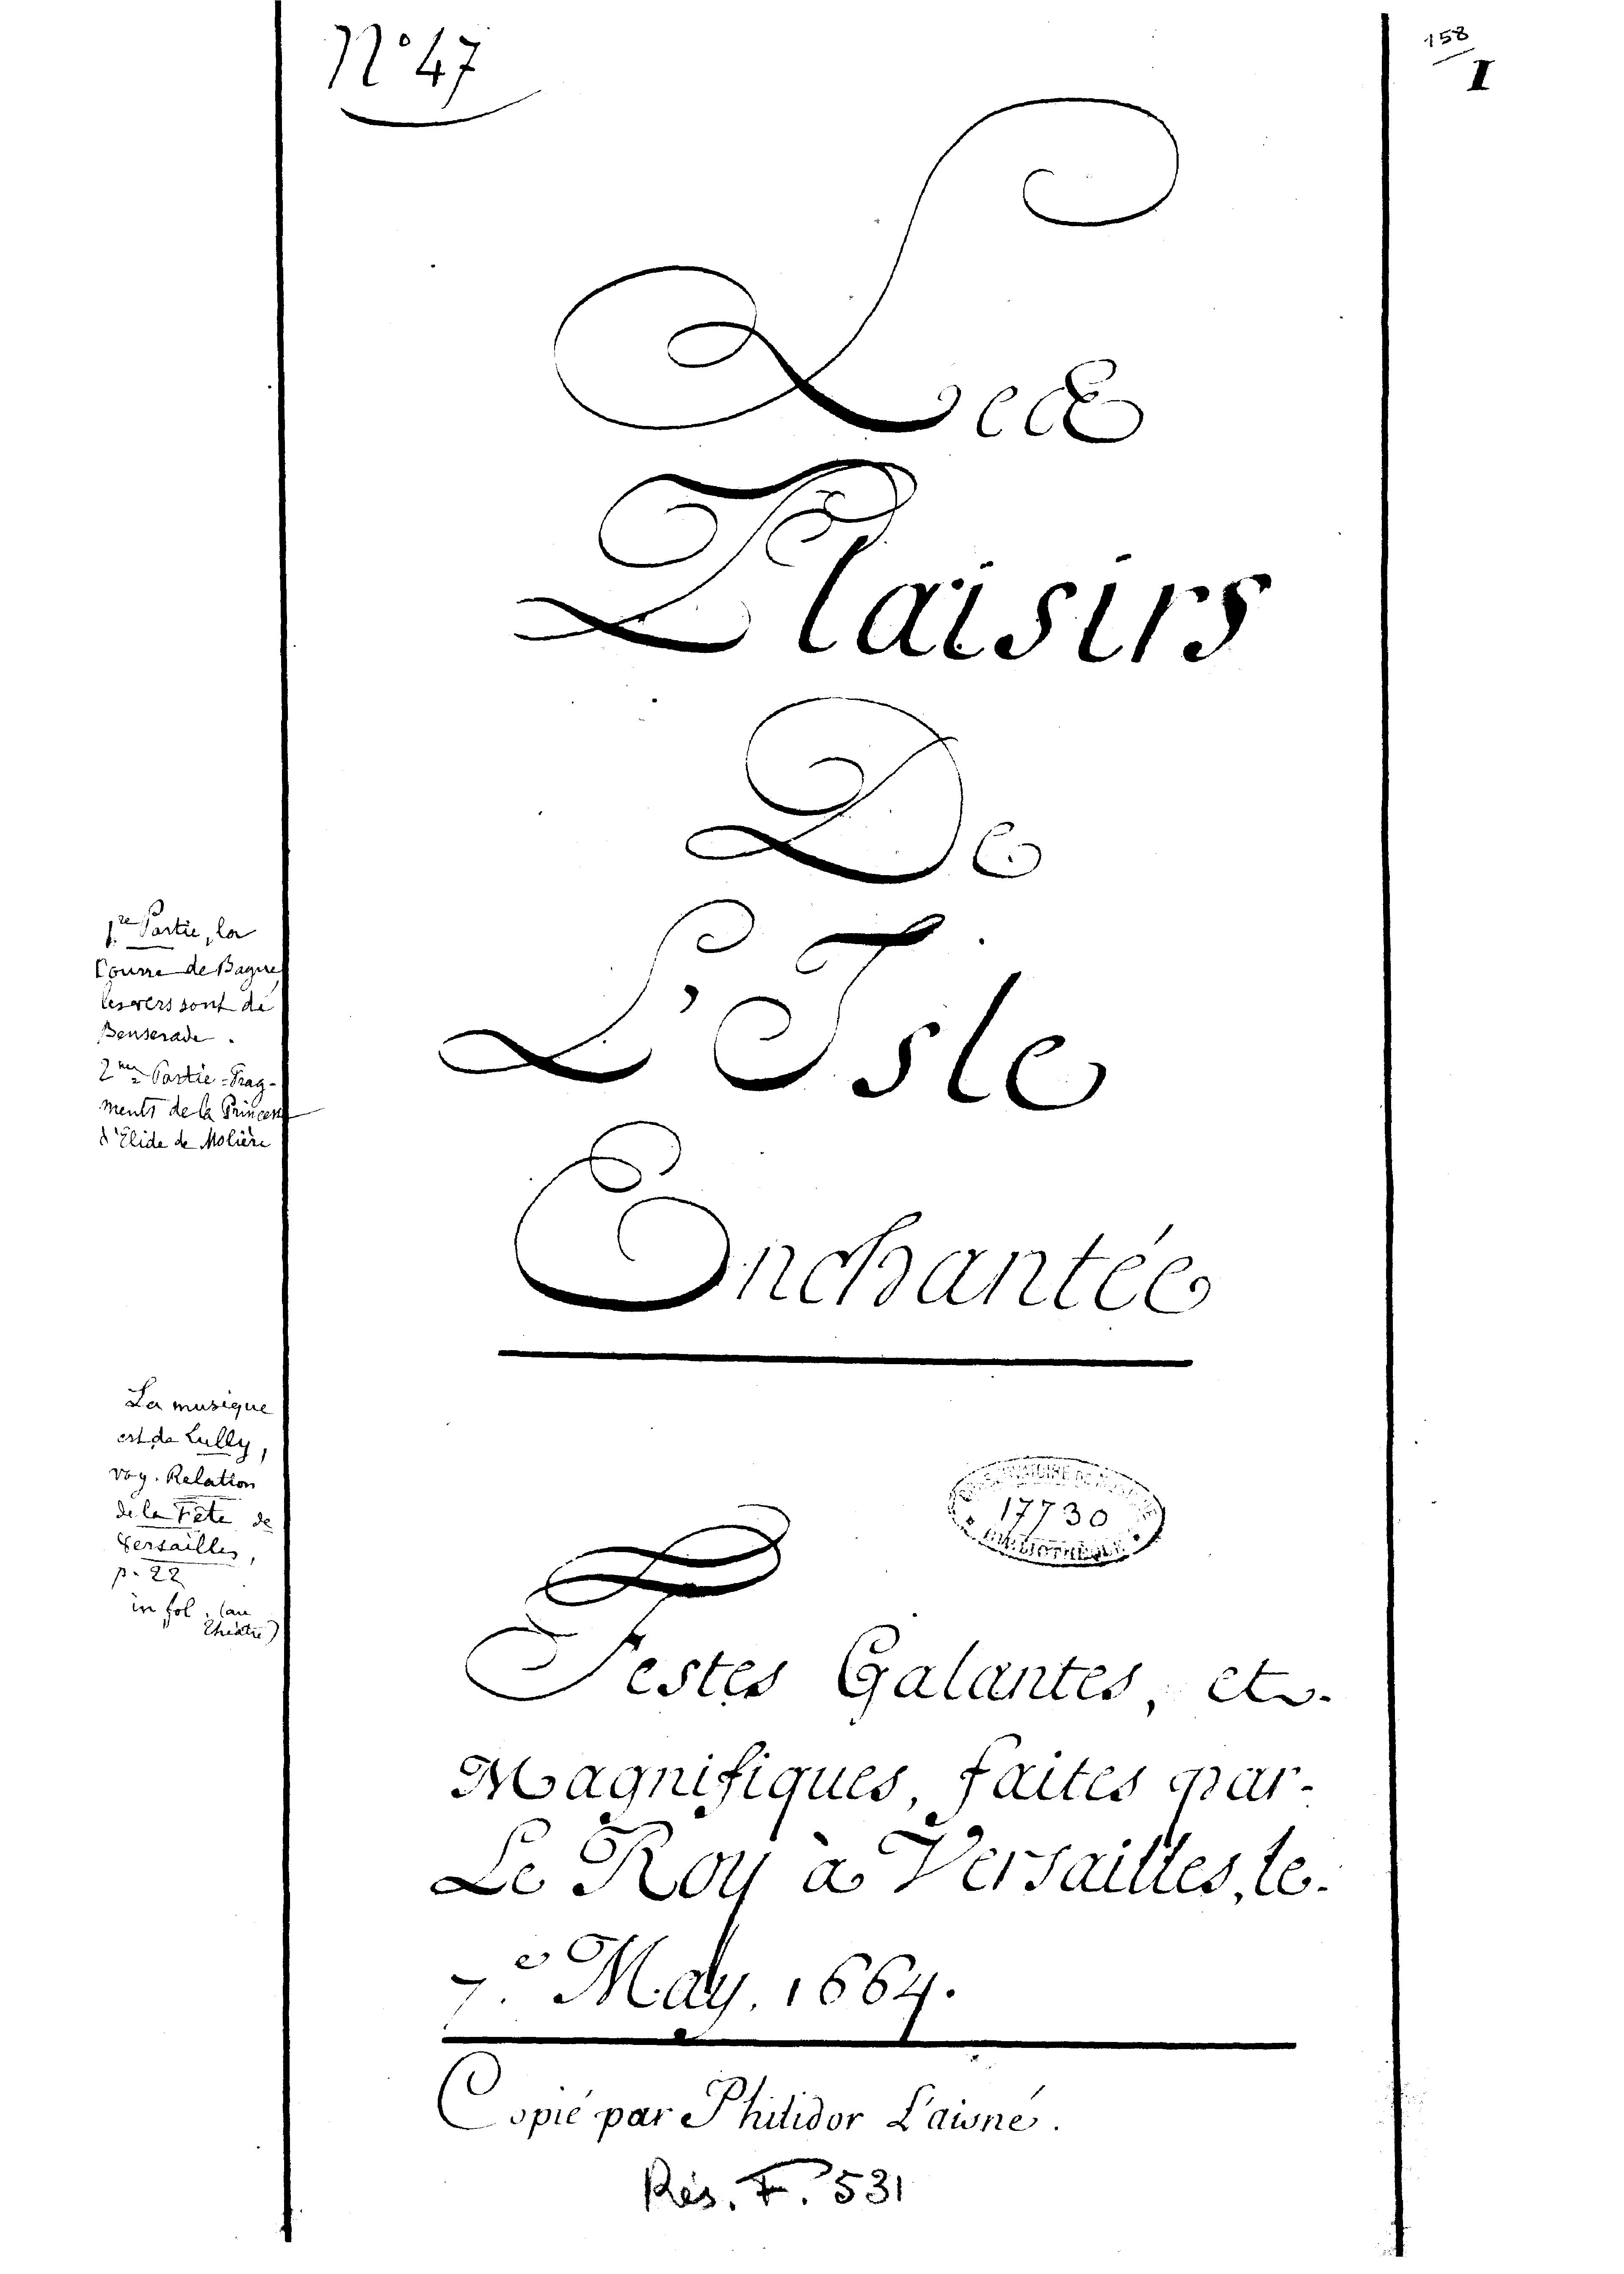 N° 47
158
I
Les
Plaisirs
De
L'Isle
Enchantée
1re Partie, la
Course de Bague,
les vers sont de
Benserade.
2me Partie - Frag-
ments de la Princesse
d'Elide de Molière
La musique
est de Lully,
voy. Relation
de la Fête de
Versailles,
p. 22
in fol. (au
Théâtre)
17730
BIBLIOTHÈQUE
Festes Galantes, et
Magnifiques, faites par
Le Roy à Versailles, le
7e May. 1664.
Copié par Philidor L'aisné.
Rés. F. 531